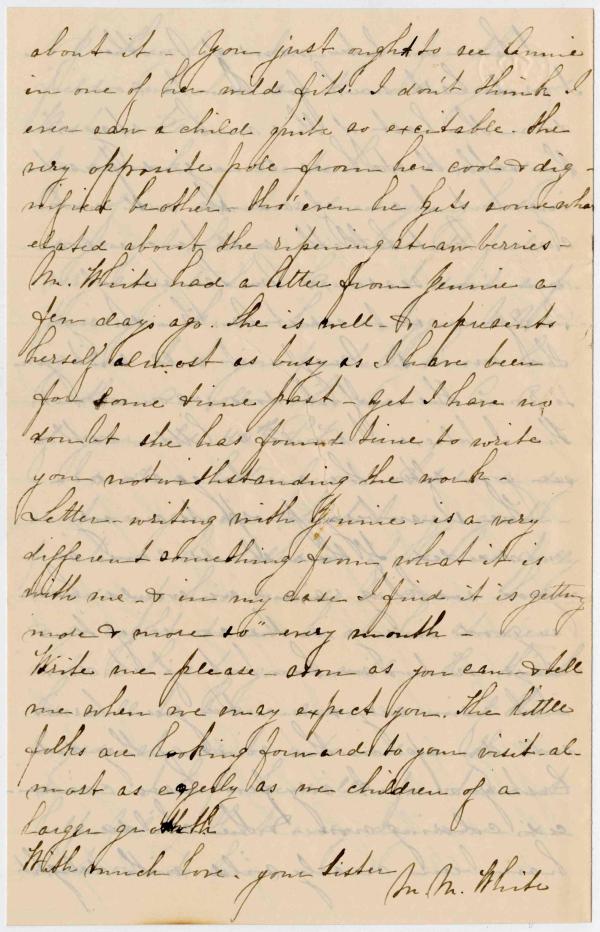 about it - You just ought to see Annie
in one of her wild fits! I don't think I
ever saw a child quite so excitable. The
very opposite pole from her cool & dig-
nified brother - tho' even he gets somewhat
elated about the ripening strawberries -
Mr. White had a letter from Jennie a
few days ago. She is well - & represents
herself almost as busy as I have been
for some time past - yet I have no
doubt she has found time to write
you notwithstanding the work -
Letter-writing with Jennie - is a very
different something from what it is
with me - & in my case I find it is getting
more & more so" every month -
Write me - please - soon as you can - & tell
me when we may expect you. The little
folks are looking forward to your visit al-
most as eagerly as we children of a
larger growth
With much love - your sister
M. M. White